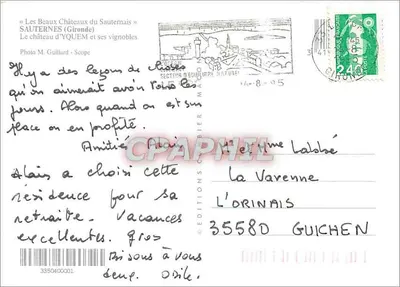 « Les Beaux Châteaux du Sauternais »
SAUTERNES (Gironde)
Le château d'YQUEM et ses vignobles
Photo M. Guillard - Scope
Il y a des leçons de choses
qu'on aimerait avoir tous les
jours. Alors quand on est sur
place on en profite.
Amitiés Alain
Alain a choisi cette
résidence pour sa
retraite. Vacances
excellentes. gros
Bisous à vous
deux. Odile.
3350400001
8-95
2,40
GIRONDE
CPAPHIL
Labbé
La Varenne
L'ORINAIS
35580 GUICHEN